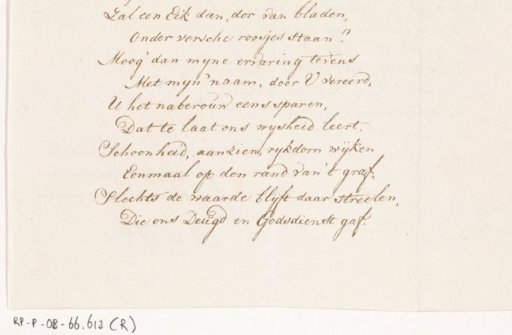 Zal een Eik dan, dor van bladen,
Onder versche roosjes staan?
Moog' dan myne ervaring tevens
Met myn' naam, door U vereerd,
U het naberouw eens sparen,
Dat te laat ons wysheid leert.
Schoonheid, aanzien, rykdom wyken
Eenmaal op den rand van 't graf,
Slechts de waarde blyft daar streelen,
Die ons Deugd en Godsdienst gaf.
RP-P-OB-66.613 (R)